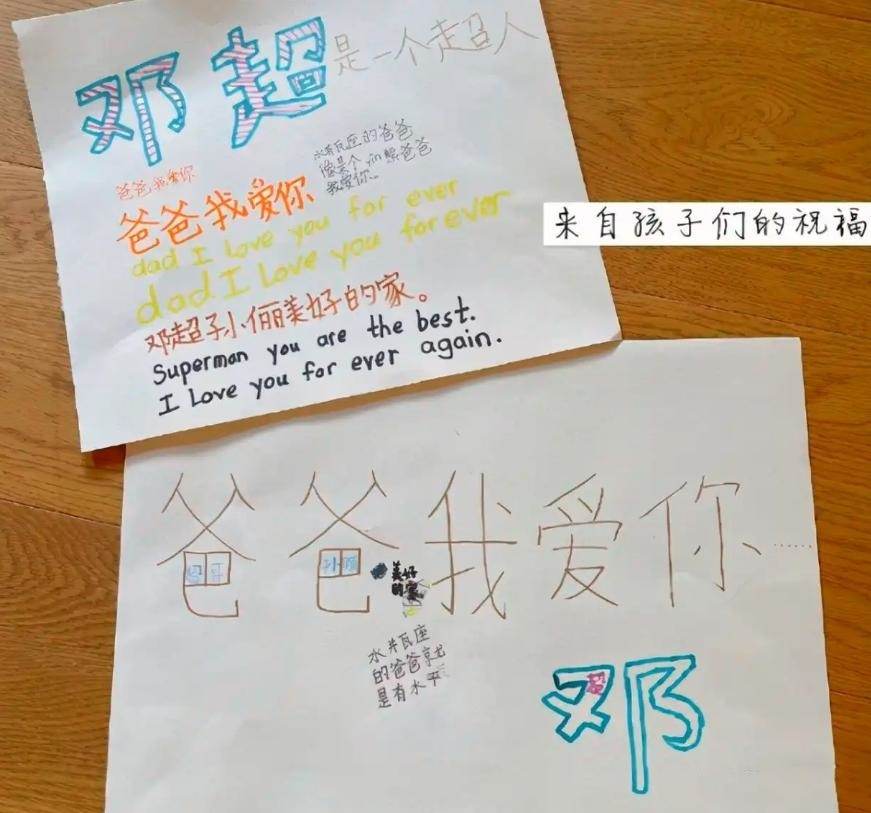 邓超是一个超人
爸爸我爱你
水瓶座的爸爸
爸爸
我爱你。
爸爸我爱你
dad I love you for ever
dad I love you forever
邓超孙俪美好的家。
Superman you are the best.
I Love you for ever again.
来自孩子们的祝福
爸爸我爱你……
孙俪
美好
的家
水井瓦座
的爸爸就
是有水平
邓
超